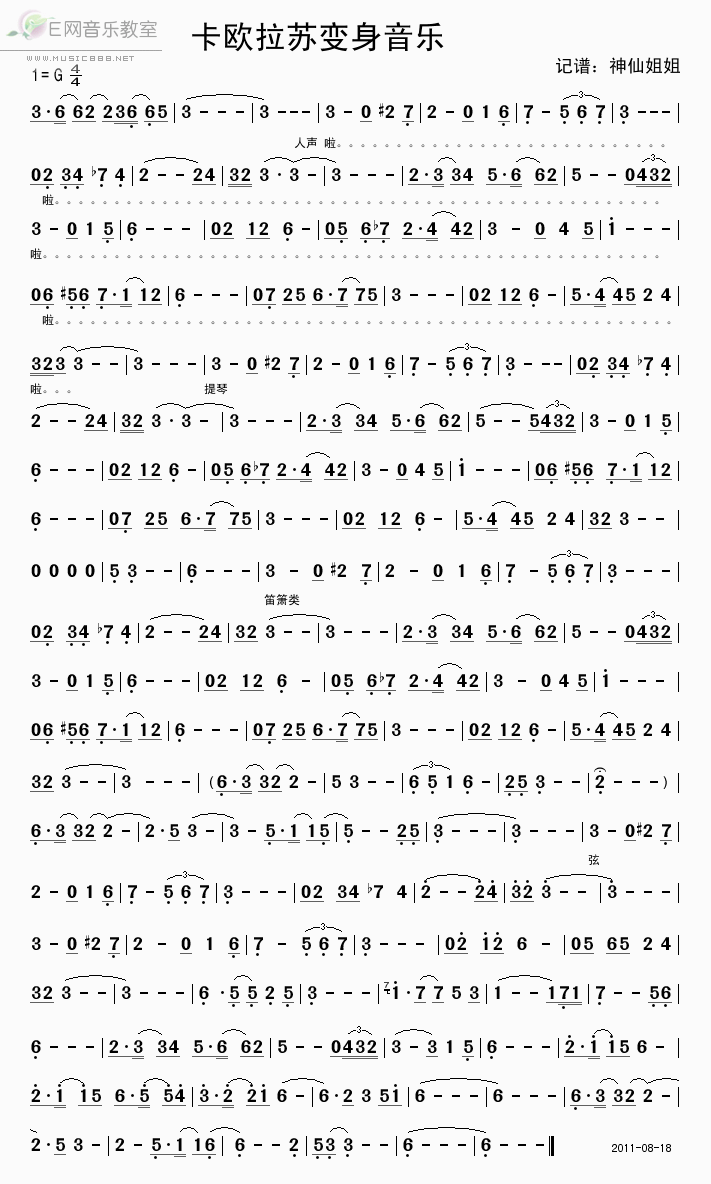 E网音乐教室
WWW.MUSIC888.NET
卡欧拉苏变身音乐
记谱：神仙姐姐
1=G 4/4
3·6 62 236 65|3 - - - |3 - - - |3 - 0 #2 7|2 - 0 1 6|7 - 5 6 7|3 - - - |
人声 啦。。。。。。。。。。。。。。。。。。。。。。。。。。。。
02 34 ♭7 4|2 - - 24|32 3·3 - |3 - - - |2·3 34 5·6 62|5 - - 0432|
啦。。。。。。。。。。。。。。。。。。。。。。。。。。。。。。。。。。。。。。。。。。。。。。。。。。。
3 - 0 1 5|6 - - - |02 12 6 - |05 6♭7 2·4 42|3 - 0 4 5|1 - - - |
啦。。。。。。。。。。。。。。。。。。。。。。。。。。。。。。。。。。。。。。。。。。。。。。。。。。。。
06 #56 7·1 12|6 - - - |07 25 6·7 75|3 - - - |02 12 6 - |5·4 45 2 4|
啦。。。。。。。。。。。。。。。。。。。。。。。。。。。。。。。。。。。。。。。。。。。。。。。。。。。。
323 3 - - |3 - - - |3 - 0 #2 7|2 - 0 1 6|7 - 5 6 7|3 - - - |02 34 ♭7 4|
啦。。。 提琴
2 - - 24|32 3·3 - |3 - - - |2·3 34 5·6 62|5 - - 5432|3 - 0 1 5|
6 - - - |02 12 6 - |05 6♭7 2·4 42|3 - 0 4 5|1 - - - |06 #56 7·1 12|
6 - - - |07 25 6·7 75|3 - - - |02 12 6 - |5·4 45 2 4|32 3 - - |
0 0 0 0|5 3 - - |6 - - - |3 - 0 #2 7|2 - 0 1 6|7 - 5 6 7|3 - - - |
笛箫类
02 34 ♭7 4|2 - - 24|32 3 - - |3 - - - |2·3 34 5·6 62|5 - - 0432|
3 - 0 1 5|6 - - - |02 12 6 - |05 6♭7 2·4 42|3 - 0 4 5|1 - - - |
06 #56 7·1 12|6 - - - |07 25 6·7 75|3 - - - |02 12 6 - |5·4 45 2 4|
32 3 - - |3 - - - |(6·3 32 2 - |5 3 - - |6 5 1 6 - |25 3 - - |2 - - - )|
6·3 32 2 - |2·5 3 - |3 - 5·1 15|5 - - 25|3 - - - |3 - - - |3 - 0#2 7|
弦
2 - 0 1 6|7 - 5 6 7|3 - - - |02 34 ♭7 4|2 - - 24|32 3 - - |3 - - - |
3 - 0 #2 7|2 - 0 1 6|7 - 5 6 7|3 - - - |02 12 6 - |05 65 2 4|
32 3 - - |3 - - - |6·5 5 2 5|3 - - - |7 1·7 7 5 3|1 - - 171|7 - - 56|
6 - - - |2·3 34 5·6 62|5 - - 0432|3 - 3 1 5|6 - - - |2·1 15 6 - |
2·1 15 6·5 54|3·2 21 6 - |6·2 3 51|6 - - - |6 - - - |6·3 32 2 - |
2·5 3 - |2 - 5·1 16|6 - - 2|53 3 - - |6 - - - |6 - - - ‖
2011-08-18